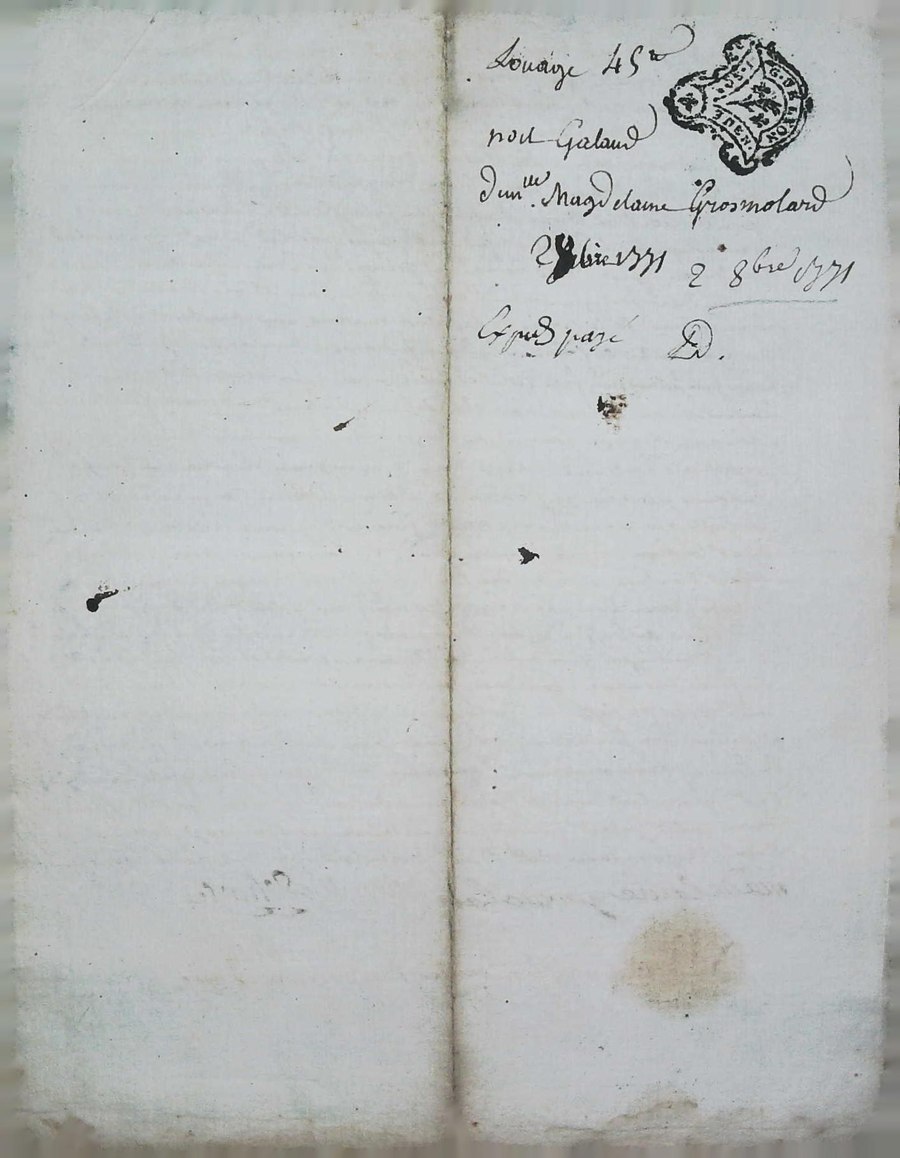 Louage 45tt
G. DE LYON
noel Galand
demlle. Magdelaine Grosmolard
2 8bre 1771 2 8bre 1771
Exped payé D.